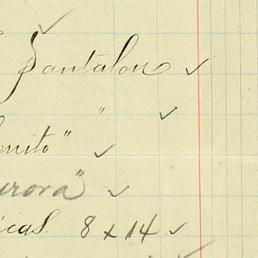 Pantalon ✓
" ✓
uito" ✓
urora" ✓
icas. 8 x 14 ✓